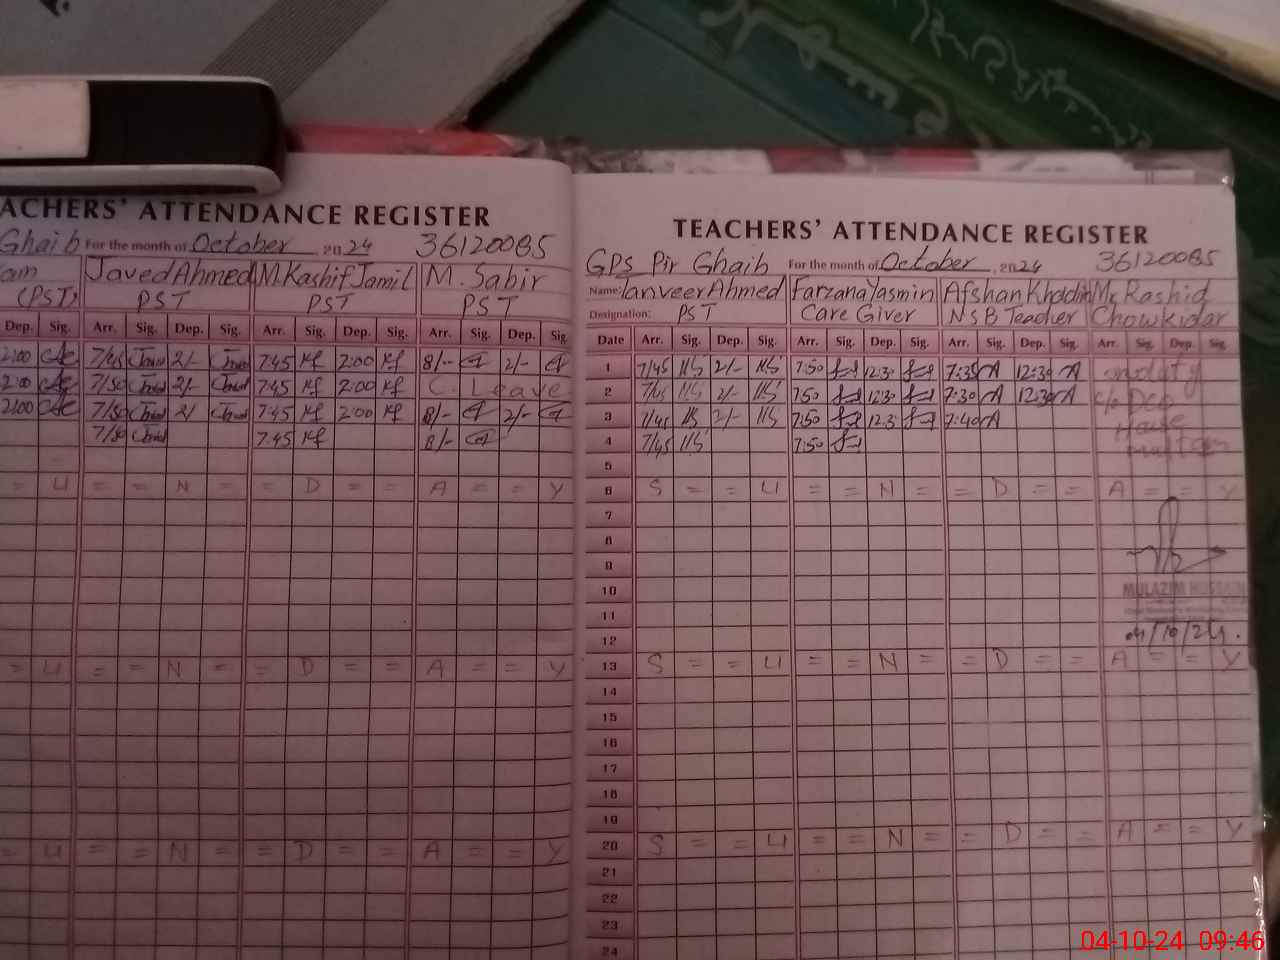 ACHERS' ATTENDANCE REGISTER
Ghaib For the month of October , 2024 36120085
am Javed Ahmed M. Kashif Jamil M. Sabir
(PST) PST PST PST
Dep. Sig. Arr. Sig. Dep. Sig. Arr. Sig. Dep. Sig. Arr. Sig. Dep. Sig.
2:00 7/45 2/- 7:45 Kf 2:00 Kf 8/- 2/-
2:00 7/50 2/- 7:45 Kf 2:00 Kf C. Leave
2:00 7/50 2/ 7:45 Kf 2:00 Kf 8/- 2/-
7/50 7:45 Kf 8/-
= U = = N = = D = = A = = Y
= U = = N = = D = = A = = Y
= U = = N = = D = = A = = Y
TEACHERS' ATTENDANCE REGISTER
GPS Pir Ghaib For the month of October , 2024 36120085
Name: Tanveer Ahmed Farzana Yasmin Afshan M. Rashid
Designation: PST Care Giver NSB Teacher Chowkidar
Date Arr. Sig. Dep. Sig. Arr. Sig. Dep. Sig. Arr. Sig. Dep. Sig. Arr. Sig. Dep. Sig.
1 7/45 2/- 7:50 12:3 7:35 12:30
2 7/45 2/- 7:50 12:3 7:30 12:30
3 7/45 2/- 7:50 12:3 7:40 House
4 7/45 7:50 Multan
5
6 S = = U = = N = = D = = A = = Y
7
8
9
10 MULAZIM HUSSAIN
11
12 04/10/24.
13 S = = U = = N = = D = = A = = Y
14
15
16
17
18
19
20 S = = U = = N = = D = = A = = Y
21
22
23
24
04-10-24 09:46